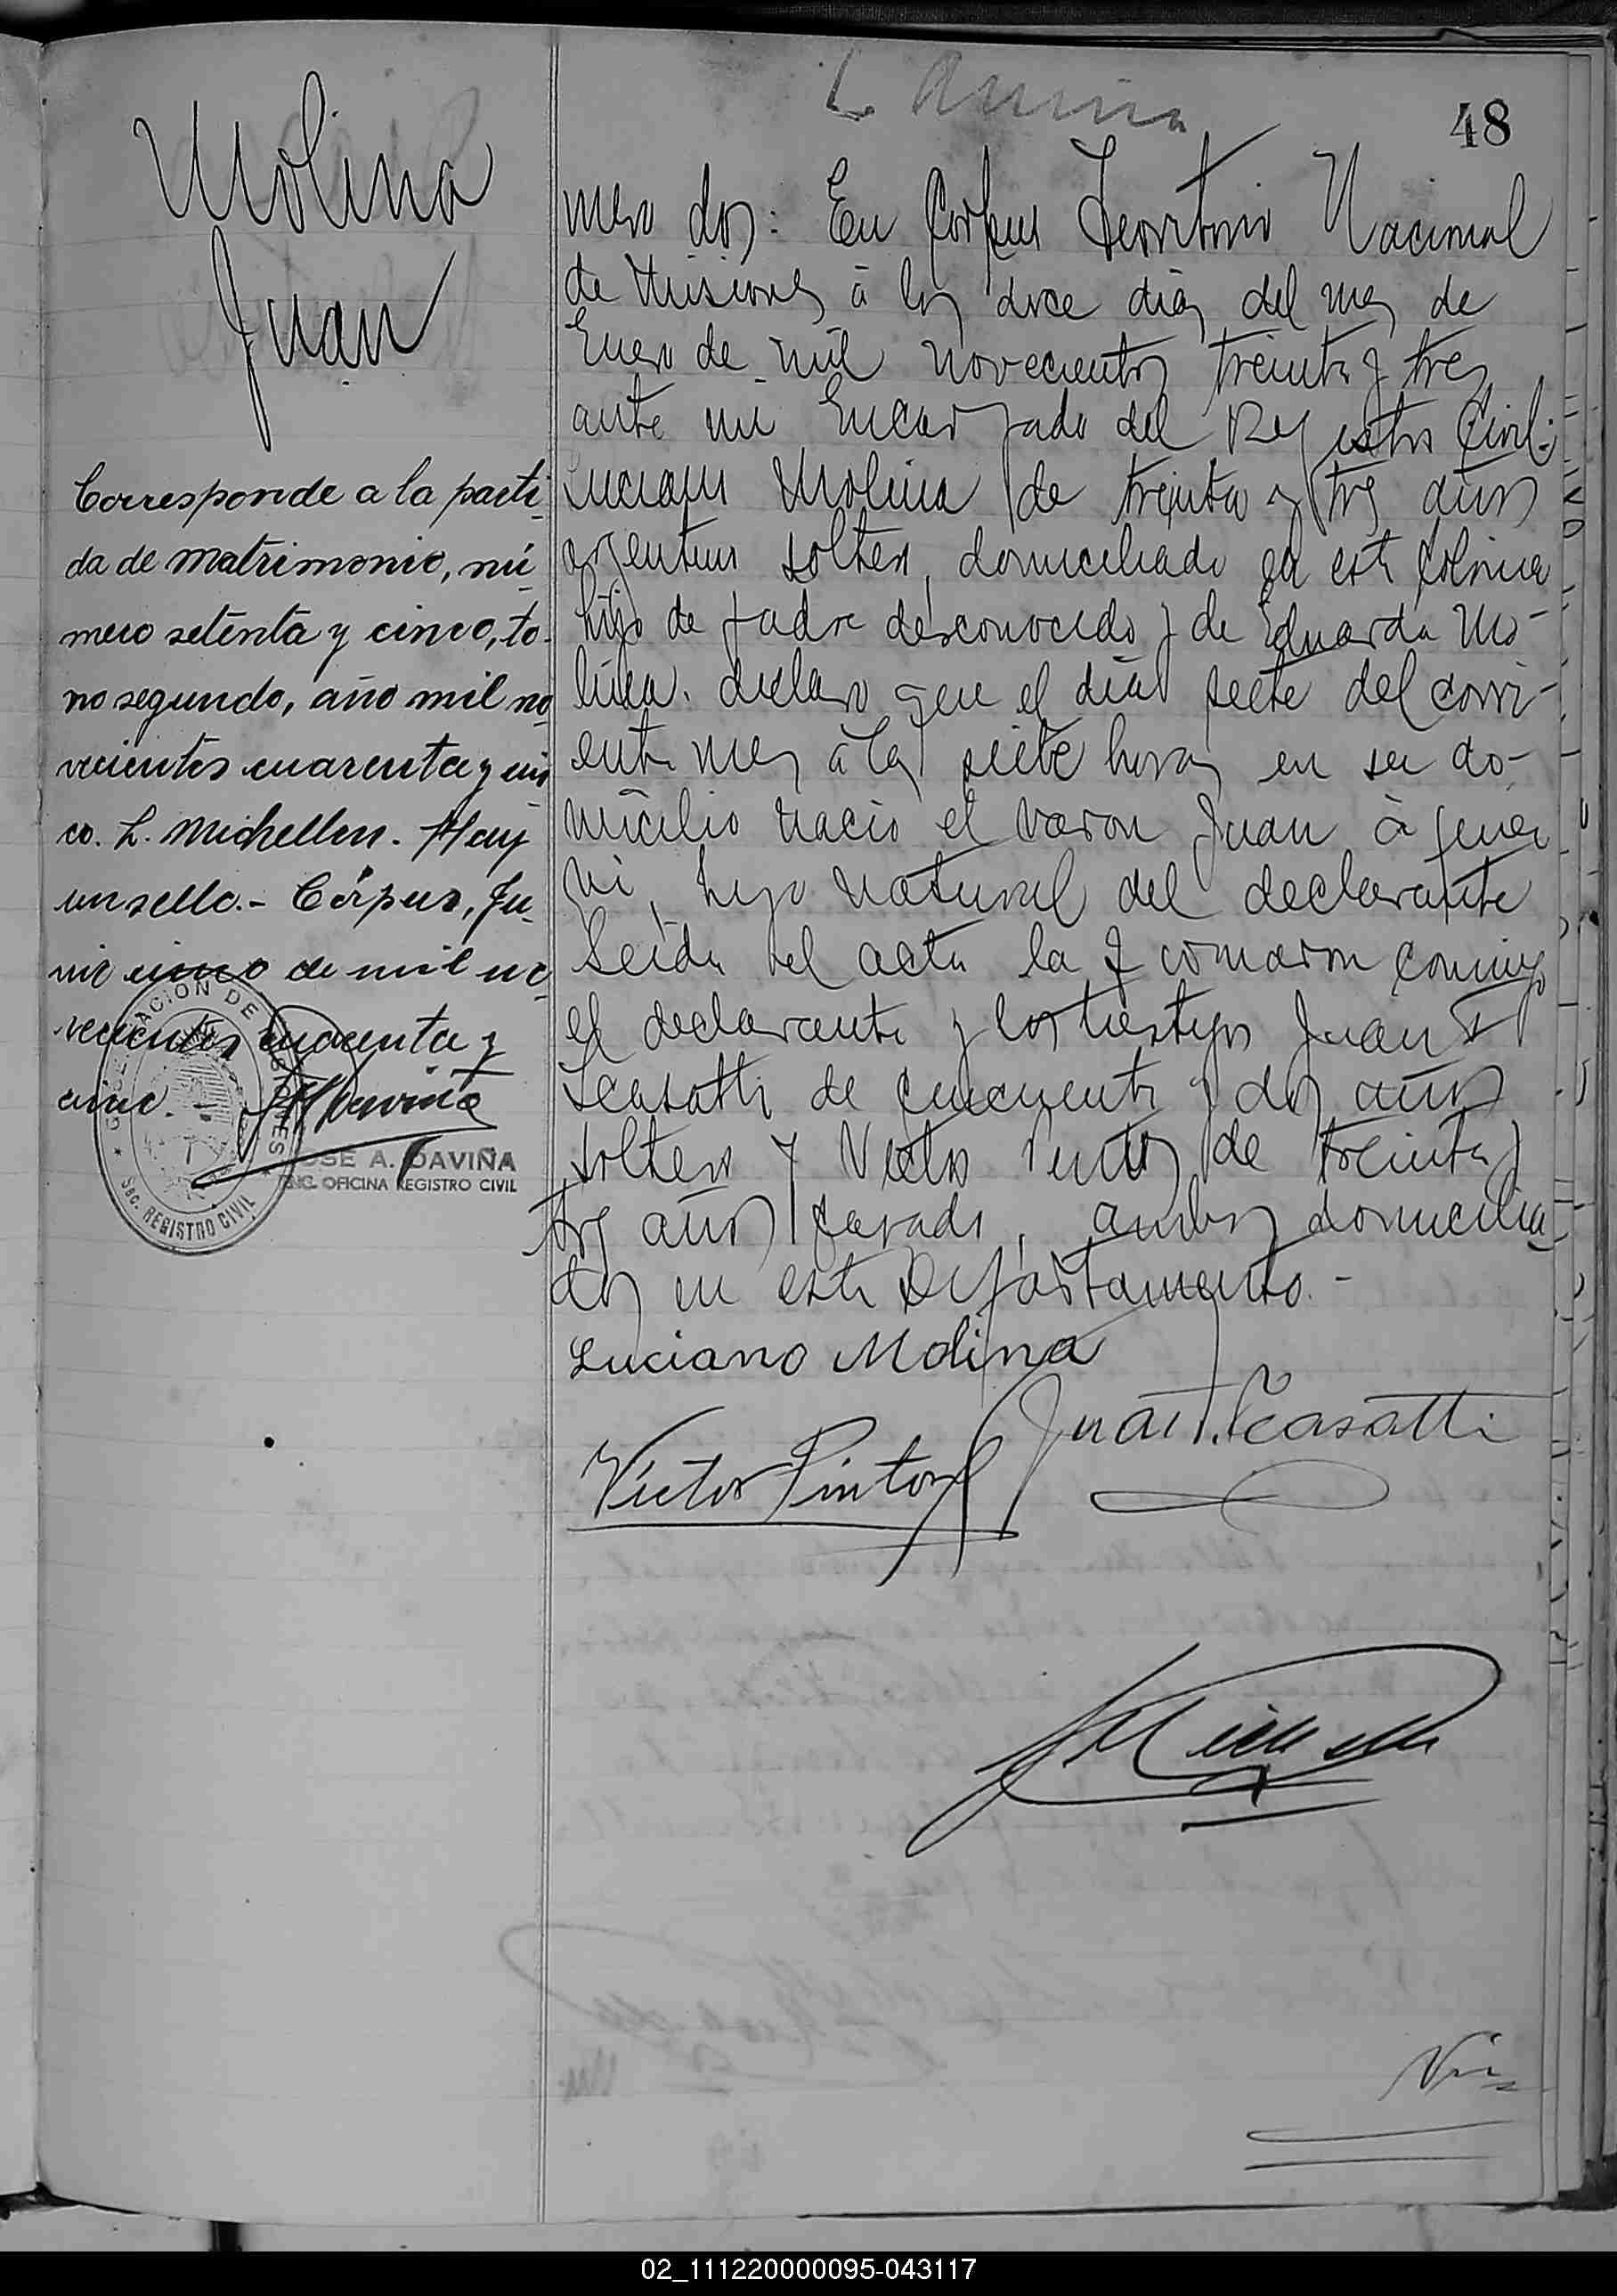 48
Molina
Juan
Corresponde a la parti-
da de matrimonio, nú-
mero setenta y cinco, to-
mo segundo, año mil no-
vecientos cuarenta y cin-
co. L. Michellon. Hay
un sello.- Córpus, Ju-
nio cinco de mil no-
vecientos cuarenta y
cinco. -
GOBERNACION DE MISIONES
Sec. REGISTRO CIVIL
JOSE A. DAVIÑA
ENC. OFICINA REGISTRO CIVIL
mero dos: En Corpus Territorio Nacional
de Misiones à los doce dias del mes de
Enero de mil novecientos treinta y tres
ante mi Encargado del Registro Civil:
Luciano Molina de treinta y tres años
argentino soltero, domiciliado en esta Colonia
hijo de padre desconocido y de Eduarda Mo-
lina. declaro que el día siete del corri-
ente mes à las siete horas en su do-
micilio nacio el varon Juan à quien
vi, hijo natural del declarante
Leida el acta la firmaron conmigo
el declarante y los testigos Juan T
Scasatti de cincuenta y dos años
soltero y Victor Pintos de treinta y
tres años casado, ambos domicilia-
dos en este Departamento.-
Luciano Molina
Juan T. Scasatti
Victor Pintos
02_111220000095-043117